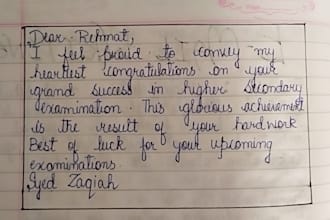 Dear Rehmat,
I feel proud to convey my
heartiest congratulations on your
grand success in higher secondary
examination. This glorious achievement
is the result of your hardwork
Best of luck for your upcoming
examinations.
Syed Zaqiah